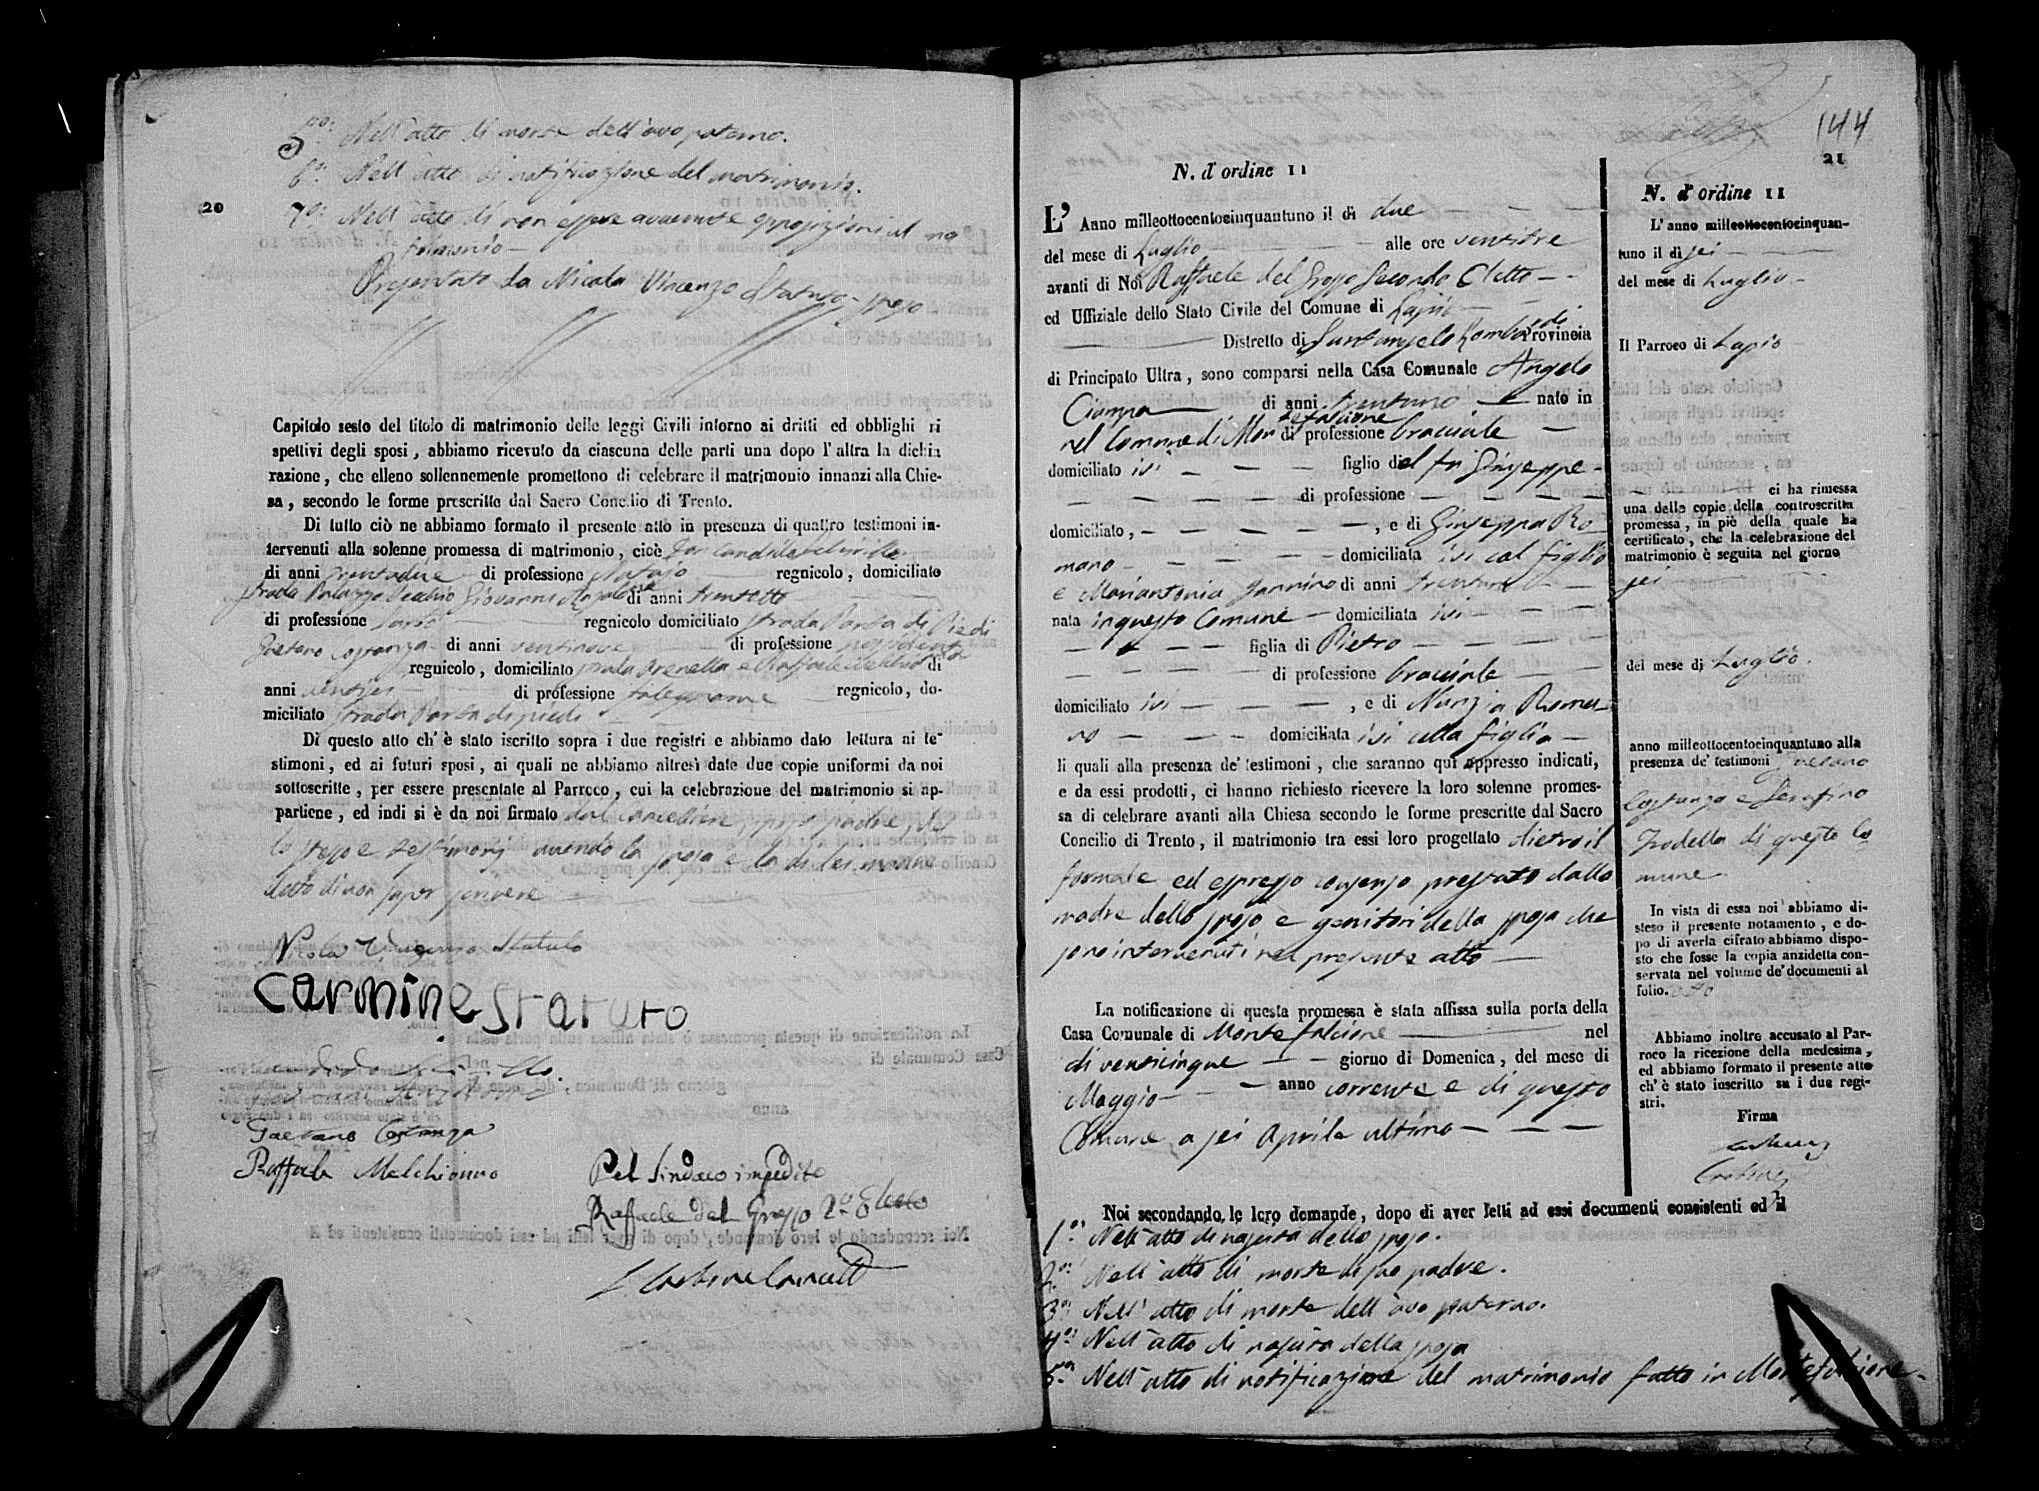 5to: Nell'atto di morte dell'avo paterno.
6to: Nell'atto di notificazione del matrimonio.
20
7mo: Nell'atto di non essere avvenute opposizioni al ma
trimonio —
Presentato da Nicola Vincenzo Statuto sposo
Capitolo sesto del titolo di matrimonio delle leggi Civili intorno ai dritti ed obblighi ri
spettivi degli sposi, abbiamo ricevuto da ciascuna delle parti una dopo l'altra la dichia
razione, che elleno sollennemente promettono di celebrare il matrimonio innanzi alla Chie-
sa, secondo le forme prescritte dal Sacro Concilio di Trento.
Di tutto ciò ne abbiamo formato il presente atto in presenza di quattro testimoni in-
tervenuti alla solenne promessa di matrimonio, cioè
di anni trentadue di professione Notajo regnicolo, domiciliato
strada Palazzo Vecchio Giovanni di anni trentotto
di professione Sarto regnicolo domiciliato strada Porta di Piedi
Gaetano Costanza di anni ventinove di professione
regnicolo, domiciliato strada e Raffaele di
anni ventisei di professione falegname regnicolo, do-
miciliato strada Porta di piedi
Di questo atto ch'è stato iscritto sopra i due registri e abbiamo dato lettura ai te-
stimoni, ed ai futuri sposi, ai quali ne abbiamo altresì date due copie uniformi da noi
sottoscritte, per essere presentate al Parroco, cui la celebrazione del matrimonio si ap-
partiene, ed indi si è da noi firmato dal Cancelliere, sposo padre del
lo stesso e testimonj avendo la sposa e la di lei madre
detto di non saper scrivere
Nicola Vincenzo Statuto
Carmine Statuto
Gaetano Costanza
Raffaele Melchionno
Pel Sindaco impedito
Raffaele del Grosso 2do Eletto
144
21
N. d'ordine 11
L'Anno milleottocentocinquantuno il dì due
del mese di Luglio alle ore ventitre
avanti di Noi Raffaele del Grosso Secondo Eletto
ed Uffiziale dello Stato Civile del Comune di Lapio
Distretto di Santangelo Lombardi Provincia
di Principato Ultra, sono comparsi nella Casa Comunale Angelo
Ciampa di anni trentuno nato in
nel Comune di Montefalcione di professione bracciale
domiciliato ivi figlio del fu Giuseppe
di professione
domiciliato, , e di Giuseppa Ro
mano domiciliata ivi col figlio
e Mariantonia Jannino di anni
nata in questo Comune domiciliata ivi
figlia di Pietro
di professione bracciale
domiciliato ivi , e di Nunzia Roma
no domiciliata ivi colla figlia
li quali alla presenza de' testimoni, che saranno qui appresso indicati,
e da essi prodotti, ci hanno richiesto ricevere la loro solenne promes-
sa di celebrare avanti alla Chiesa secondo le forme prescritte dal Sacro
Concilio di Trento, il matrimonio tra essi loro progettato dietro il
formale ed espresso consenso prestato dalla
madre dello sposo e genitori della sposa che
sono intervenuti nel presente atto
La notificazione di questa promessa è stata affissa sulla porta della
Casa Comunale di Montefalcione nel
di venticinque giorno di Domenica, del mese di
Maggio anno corrente e di questo
Comune a sei Aprile ultimo
Noi secondando le loro domande, dopo di aver letti ad essi documenti consistenti ed il
1o: Nell'atto di nascita dello sposo.
2o: Nell'atto di morte di suo padre.
3o: Nell'atto di morte dell'avo paterno.
4o: Nell'atto di nascita della sposa
5o: Nell'atto di notificazione del matrimonio fatto in Montefalcione.
N. d'ordine 11
L'anno milleottocentocinquan-
tuno il dì sei
del mese di Luglio
Il Parroco di Lapio
ci ha rimessa
una delle copie della controscritta
promessa, in piè della quale ha
certificato, che la celebrazione del
matrimonio è seguita nel giorno
sei
del mese di Luglio.
anno milleottocentocinquantuno alla
presenza de' testimoni Gaetano
Costanza e Serafino
Trodella di questo Co
mune
In vista di essa noi abbiamo di-
steso il presente notamento, e do-
po di averla cifrato abbiamo dispo-
sto che fosse la copia anzidetta con-
servata nel volume de' documenti al
folio.
Abbiamo inoltre accusato al Par-
roco la ricezione della medesima,
ed abbiamo formato il presente atto
ch'è stato inscritto su i due regi-
stri.
Firma